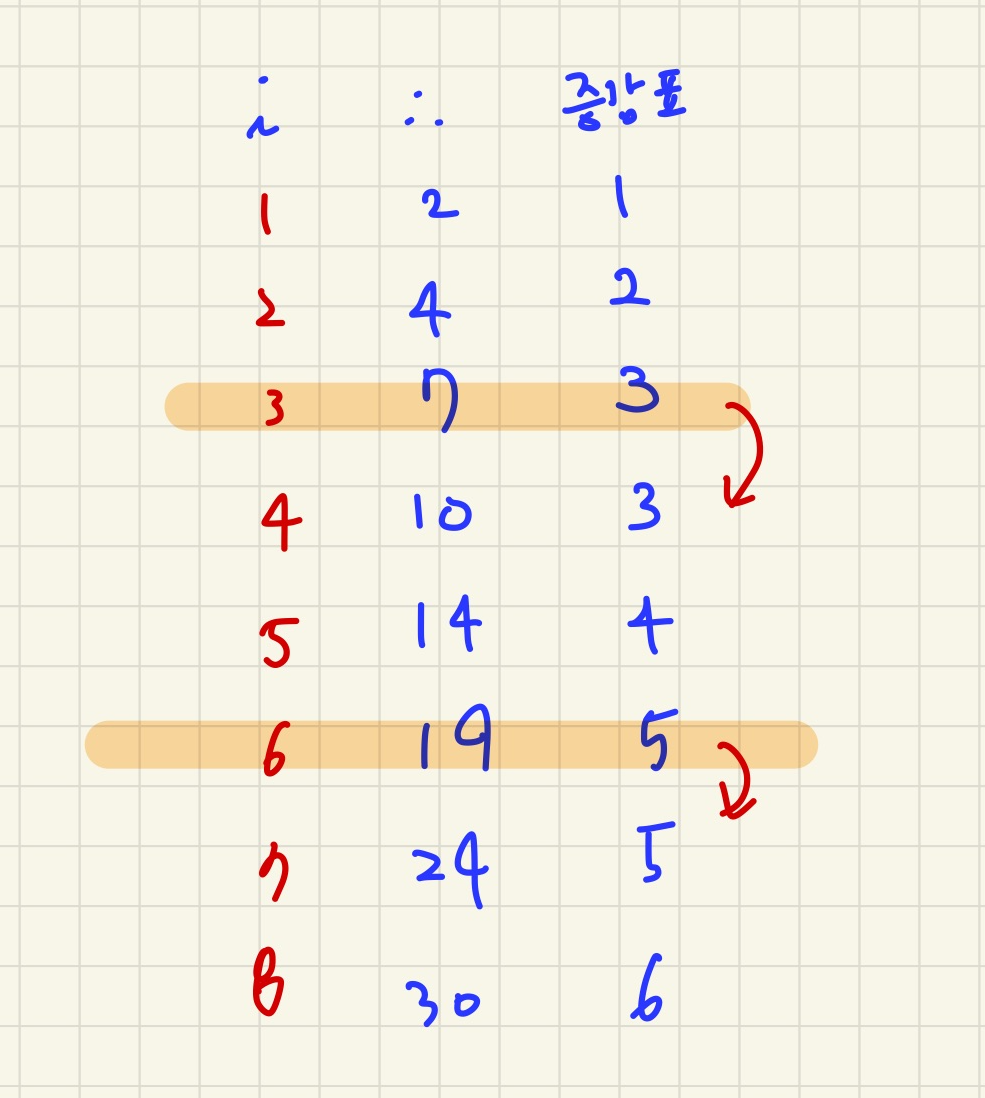 i ∴ 증가량 표
1 2 1
2 4 2
3 7 3
4 10 3
5 14 4
6 19 5
7 24 5
8 30 6